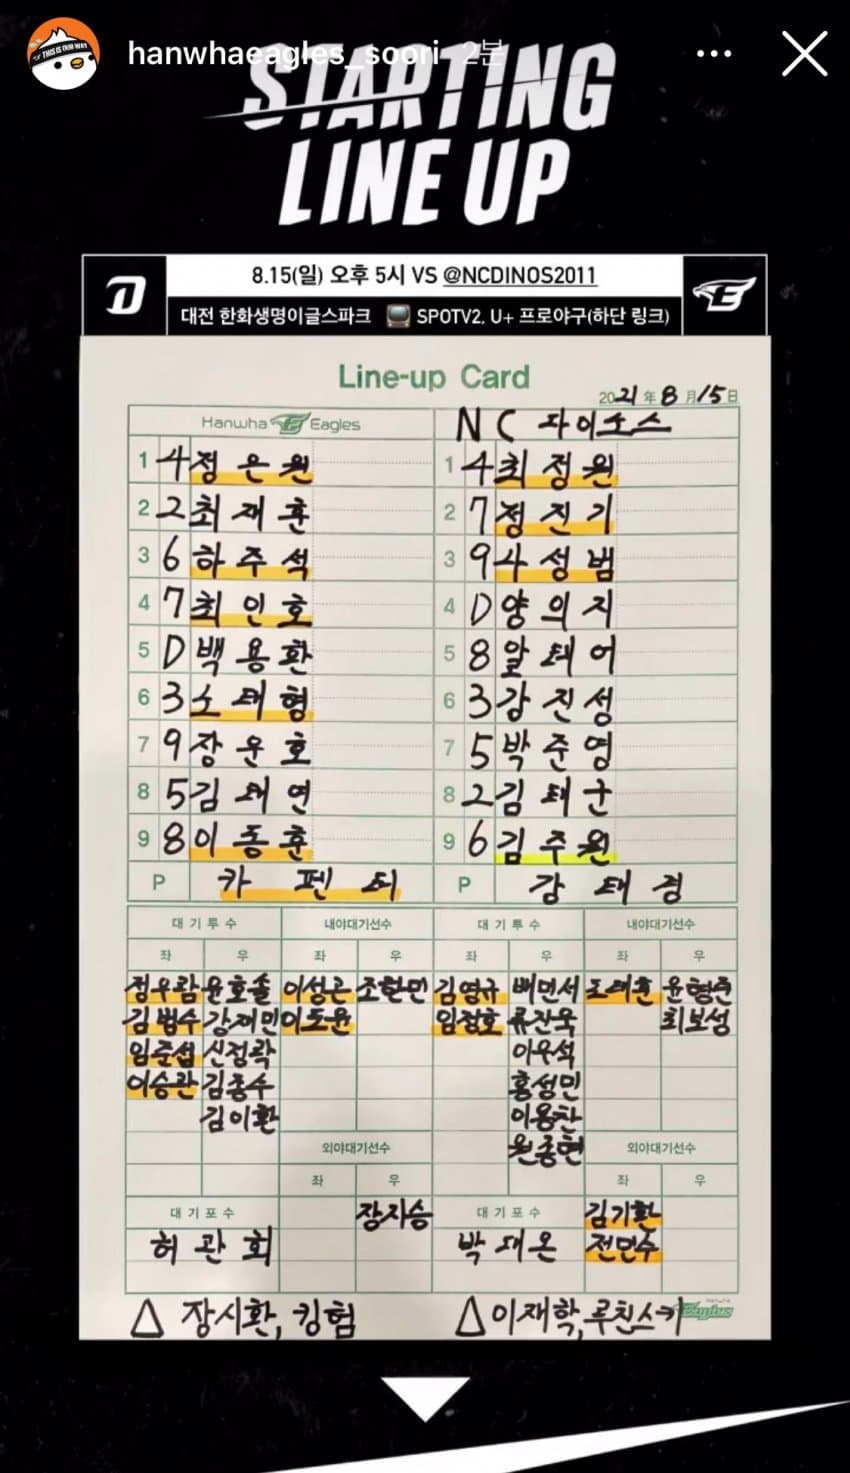 hanwhaeagles_soori 2분
STARTING
LINE UP
8.15(일) 오후 5시 VS @NCDINOS2011
대전 한화생명이글스파크 SPOTV2, U+ 프로야구(하단 링크)
Line-up Card
2021 年 8 月 15 日
Hanwha Eagles NC 다이노스
1 4 정은원 1 4 최정원
2 2 최재훈 2 7 정진기
3 6 하주석 3 9 나성범
4 7 최인호 4 D 양의지
5 D 백용환 5 8 알테어
6 3 노태형 6 3 강진성
7 9 장운호 7 5 박준영
8 5 김태연 8 2 김태군
9 8 이동훈 9 6 김주원
P 카펜터 P 강태경
대기투수 내야대기선수 대기투수 내야대기선수
좌 우 좌 우 좌 우 좌 우
정우람 윤호솔 이성곤 조한민 김영규 배민서 도태훈 윤형준
김범수 강재민 이도윤 임정호 류진욱 최보성
임준섭 신정락 이우석
이승관 김종수 홍성민
김이환 이용찬
외야대기선수 원종현 외야대기선수
좌 우 좌 우
대기포수 장지승 대기포수 김기환
허관회 박대온 전민수
△ 장시환, 킹험 △ 이재학, 루친스키 Eagles